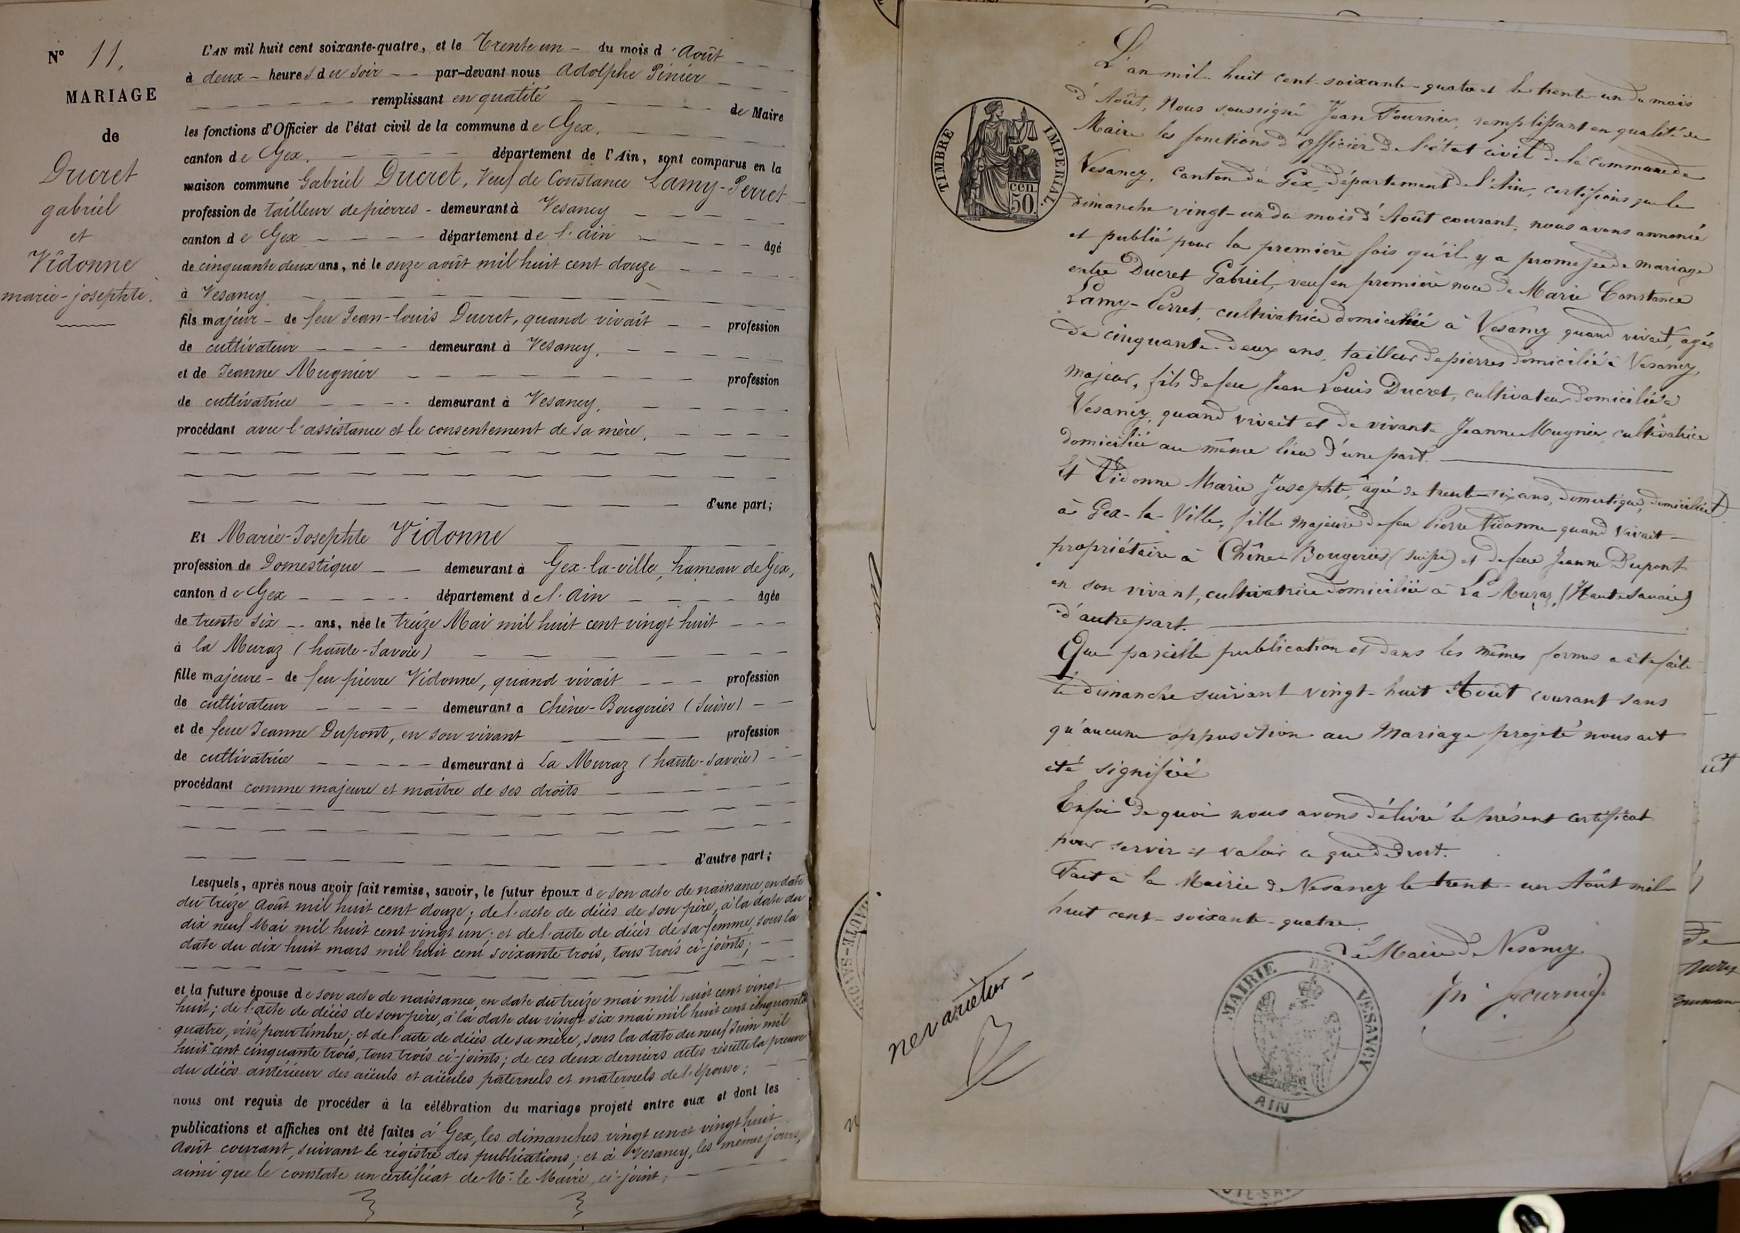 N° 11.
MARIAGE
de
Ducret
gabriel
et
Vidonne
marie-josephte.
L'AN mil huit cent soixante-quatre, et le Trente un - du mois d'Août
à deux - heures du soir - - par-devant nous Adolphe Pinier
remplissant en qualité de Maire
les fonctions d'Officier de l'état civil de la commune de Gex.
canton de Gex. département de l'Ain, sont comparus en la
maison commune Gabriel Ducret, Veuf de Constance Lamy-Perret
profession de tailleur de pierres - demeurant à Vesancy
canton de Gex département de l'ain âgé
de cinquante deux ans, né le onze août mil huit cent douze
à Vesancy
fils majeur - de feu Jean-louis Ducret, quand vivait - - profession
de cultivateur demeurant à Vesancy.
et de Jeanne Mugnier profession
de cultivatrice demeurant à Vesancy.
procédant avec l'assistance et le consentement de sa mère.
d'une part;
Et Marie-Josephte Vidonne
profession de Domestique - - demeurant à Gex-la-ville, hameau de Gex,
canton de Gex département de l'Ain âgée
de trente six - - ans, née le treize Mai mil huit cent vingt huit
à la Muraz (haute-Savoie)
fille majeure - de feu pierre Vidonne, quand vivait profession
de cultivateur demeurant à Chêne-Bougeries (Suisse)
et de feue Jeanne Dupont, en son vivant profession
de cultivatrice demeurant à La Muraz (haute-Savoie)
procédant comme majeure et maître de ses droits
d'autre part;
Lesquels, après nous avoir fait remise, savoir, le futur époux de son acte de naissance, en date
du treize Août mil huit cent douze; de l'acte de décès de son père, à la date du
dix neuf Mai mil huit cent vingt un; et de l'acte de décès de sa femme, sous la
date du dix huit mars mil huit cent soixante trois, tous trois ci-joints;
et la future épouse de son acte de naissance, en date du treize mai mil huit cent vingt
huit; de l'acte de décès de son père, à la date du vingt six mai mil huit cent cinquante
quatre, visé pour timbre; et de l'acte de décès de sa mère, sous la date du neuf Juin mil
huit cent cinquante trois, tous trois ci-joints; de ces deux derniers actes résulte la preuve
du décès antérieur des aïeuls et aïeules paternels et maternels de l'épouse;
nous ont requis de procéder à la célébration du mariage projeté entre eux et dont les
publications et affiches ont été faites à Gex, les dimanches vingt un et vingt huit
Août courant, suivant le régistre des publications; et à Vesancy, les mêmes jours,
ainsi que le constate un certificat de Mr. le Maire, ci-joint;
TIMBRE IMPERIAL
50 cen
L'an mil huit cent soixante-quatre et le trente un du mois
d'Août, Nous soussigné Jean Fournier, remplissant en qualité de
Maire les fonctions d'officier de l'état civil de la commune de
Vesancy, canton de Gex, département de l'Ain, certifions que le
dimanche vingt-un du mois d'Août courant, nous avons annoncé
et publié pour la première fois qu'il y a promesse de mariage
entre Ducret Gabriel, veuf en première noce de Marie Constance
Lamy-Perret, cultivatrice domiciliée à Vesancy quand vivait, âgé
de cinquante-deux ans, tailleur de pierres domicilié à Vesancy,
majeur, fils de feu Jean Louis Ducret, cultivateur domicilié à
Vesancy, quand vivait et de vivante Jeanne Mugnier, cultivatrice
domiciliée au même lieu d'une part.
Et Vidonne Marie Josephte, âgée de trente-six ans, domestique, domiciliée
à Gex-la-Ville, fille majeure de feu Pierre Vidonne quand vivait
propriétaire à Chêne-Bougeries (suisse) et de feue Jeanne Dupont
en son vivant, cultivatrice domiciliée à La Muraz (Haute Savoie)
d'autre part.
Que pareille publication et dans les mêmes formes a été faite
le dimanche suivant vingt-huit Août courant sans
qu'aucune opposition au Mariage projeté nous ait
été signifiée
En foi de quoi nous avons délivré le présent certificat
pour servir et valoir ce que de droit.
Fait à la Mairie de Vesancy le trente-un Août mil
huit cent-soixante-quatre.
Le Maire de Vesancy
Jn. Fournier
MAIRIE DE VESANCY
AIN
ne varietur